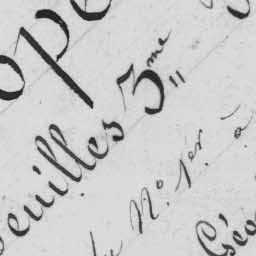 ope
euilles 3me
N° 1er à
Géo